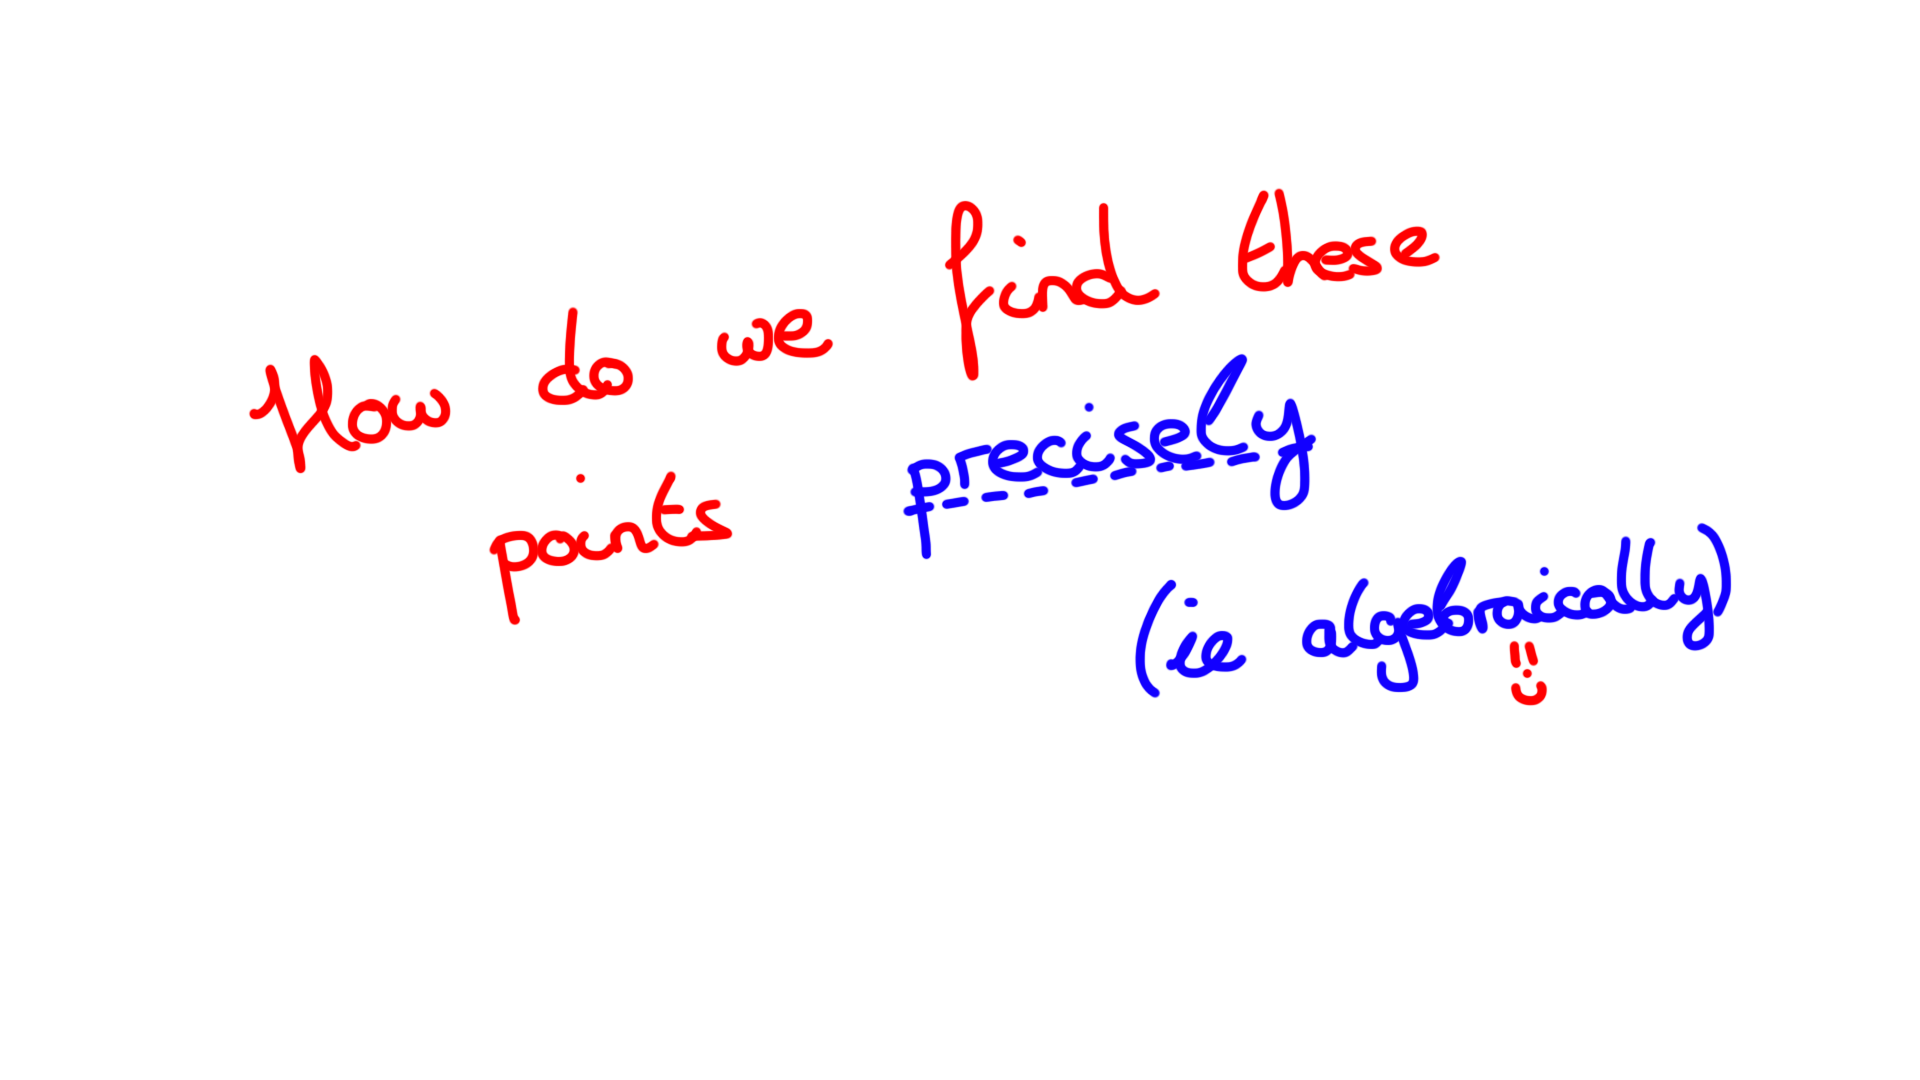 How do we find these
points precisely
(ie algebraically)